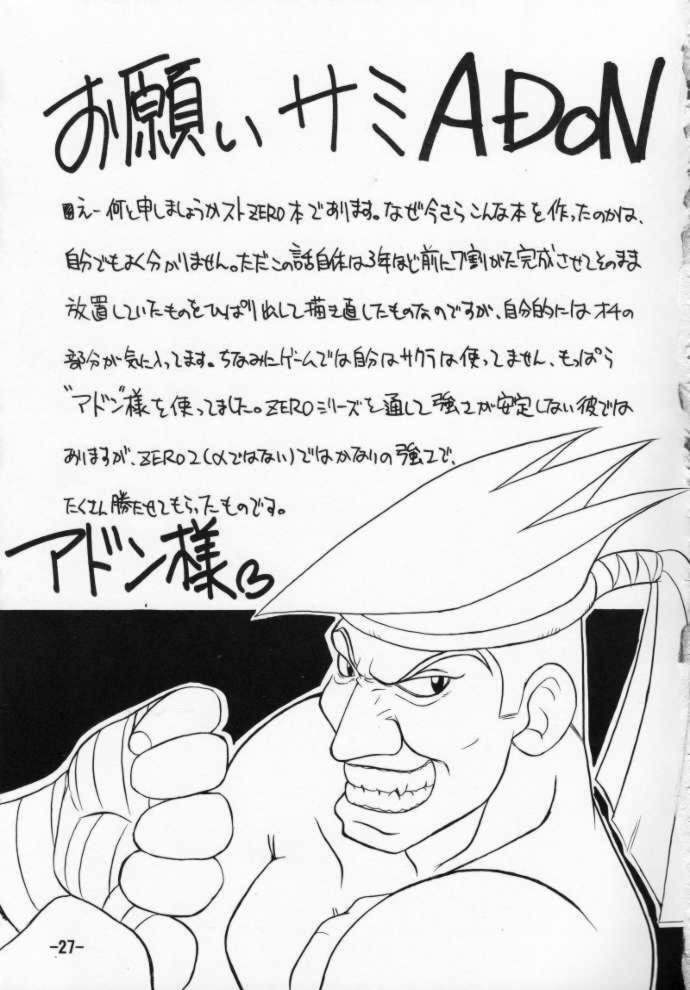 お願いサミADON
えー何と申しましょうかストZERO本であります。なぜ今さらこんな本を作ったのかは、
自分でもよく分かりません。ただこの話自体は3年ほど前に7割がた完成させてそのまま
放置していたものをひっぱり出して描き直したものなのですが、自分的にはオチの
部分が気に入ってます。ちなみにゲームでは自分はサクラは使ってません、もっぱら
"アドン"様を使ってました。ZEROシリーズを通して強さが安定しない彼では
ありますが、ZERO2(αではない)ではかなりの強さで、
たくさん勝たせてもらったものです。
アドン様
-27-